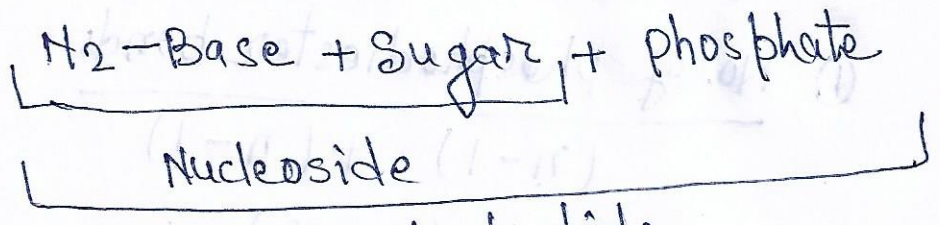 N2-Base + Sugar + phosphate
Nucleoside